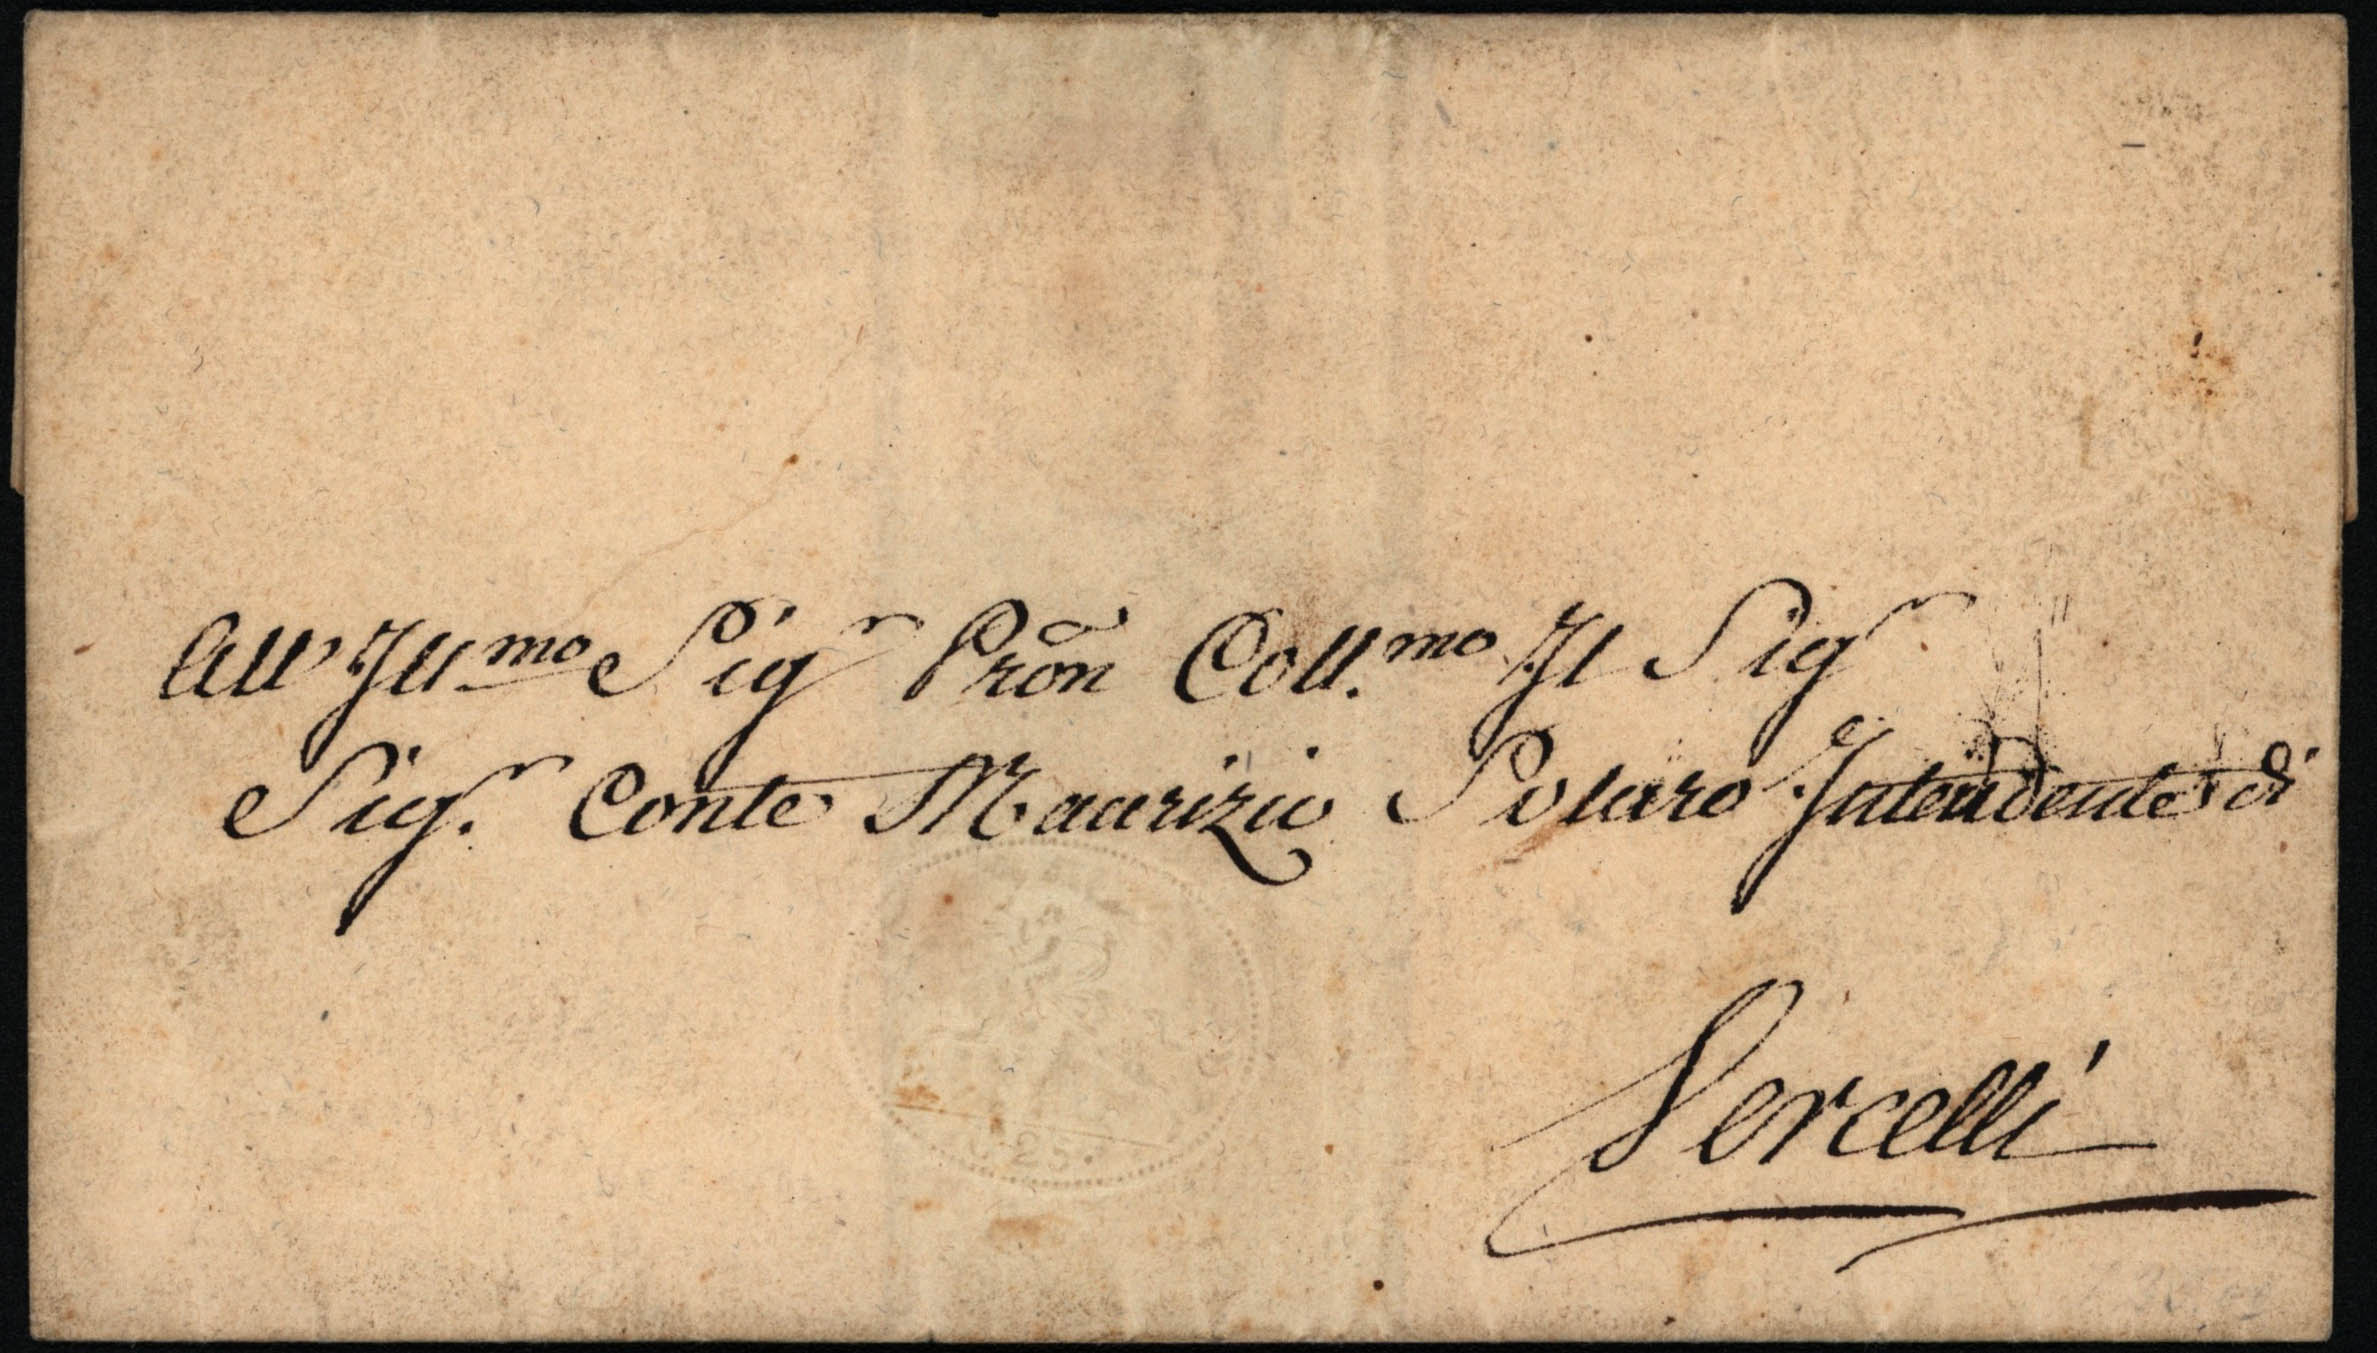 All' Ill.mo Sig.r Prõn Coll.mo Il Sig.r
Sig.r Conte Maurizio Solaro Intendente di
Vercelli